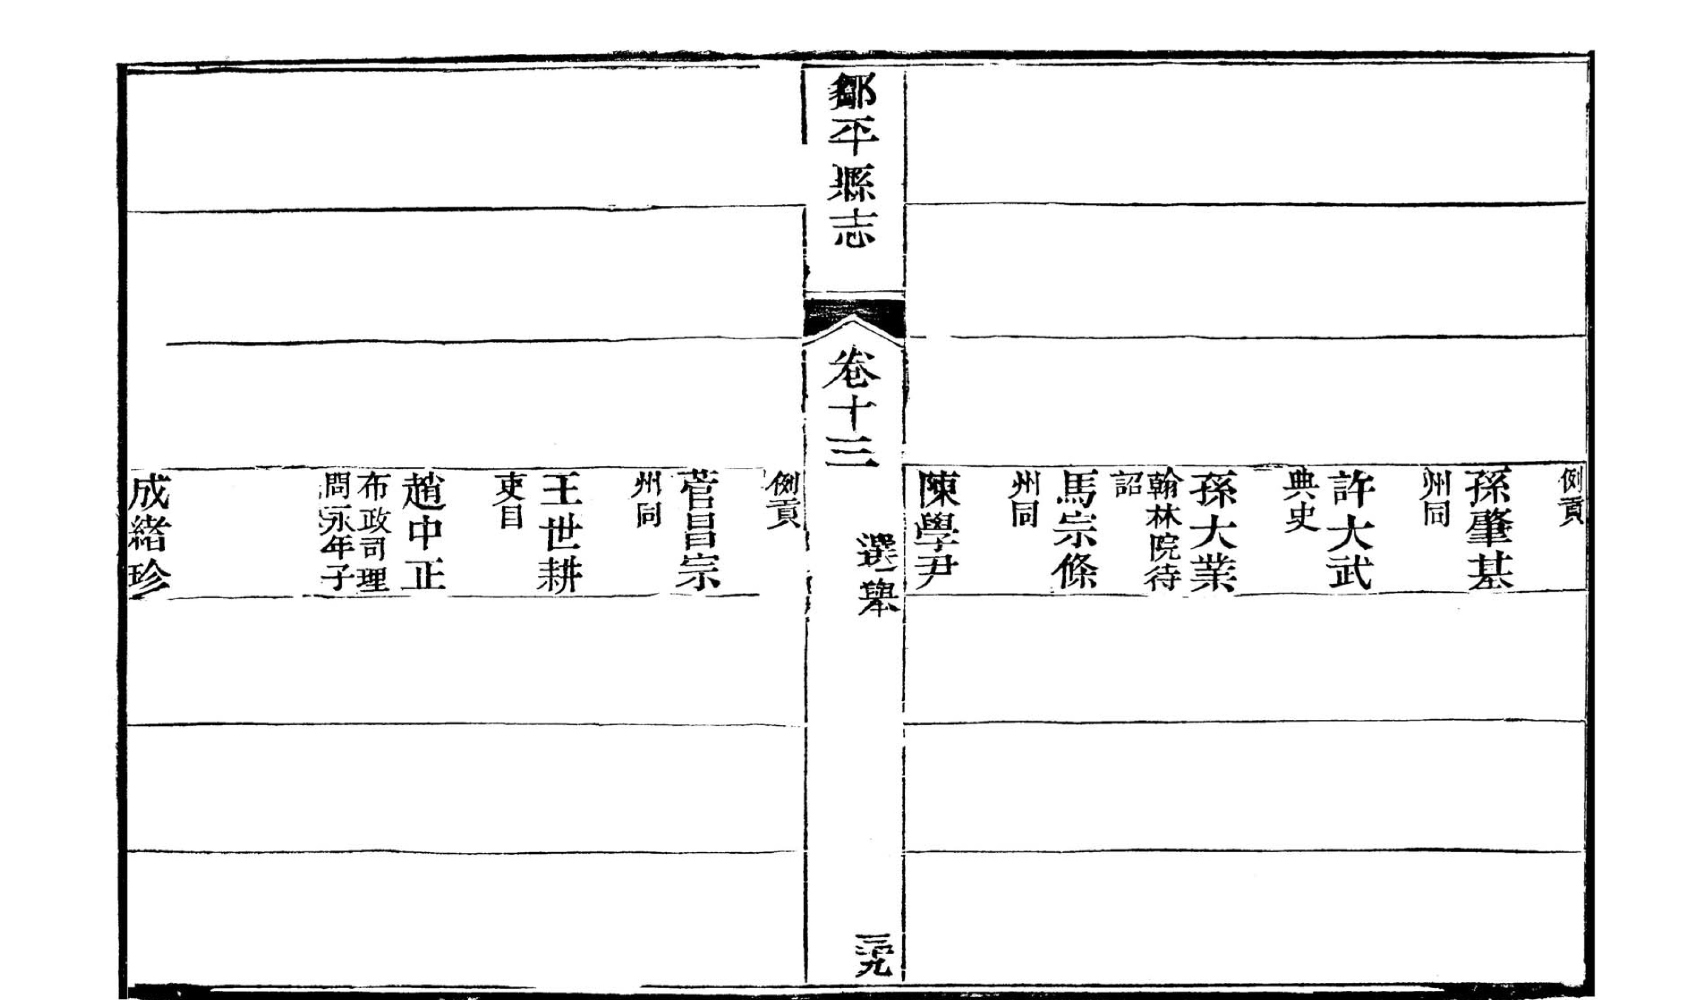 例貢
孫肇基
州同
許大武
典史
孫大業
翰林院待
詔
馬宗條
州同
陳學尹
鄒平縣志
卷十三
選舉
三九
例貢
菅昌宗
州同
王世耕
吏目
趙中正
布政司理
問永年子
成緒珍